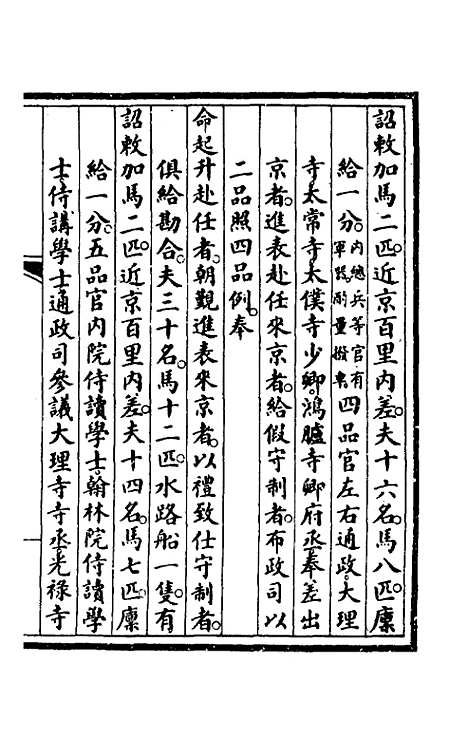 詔敕加馬二匹近京百里内差夫十六名馬八匹廩
給一分内總兵等官有軍器酌量撥車四品官左右通政大理
寺太常寺太僕寺少卿鴻臚寺卿府丞奉差出
京者進表赴任來京者給假守制者布政司以
二品照四品例奉
命起升赴任者朝覲進表來京者以禮致仕守制者
俱給勘合夫三十名馬十二匹水路船一隻有
詔敕加馬二匹近京百里内差夫十四名馬七匹廩
給一分五品官内院侍讀學士翰林院侍讀學
士侍講學士通政司參議大理寺寺丞光祿寺